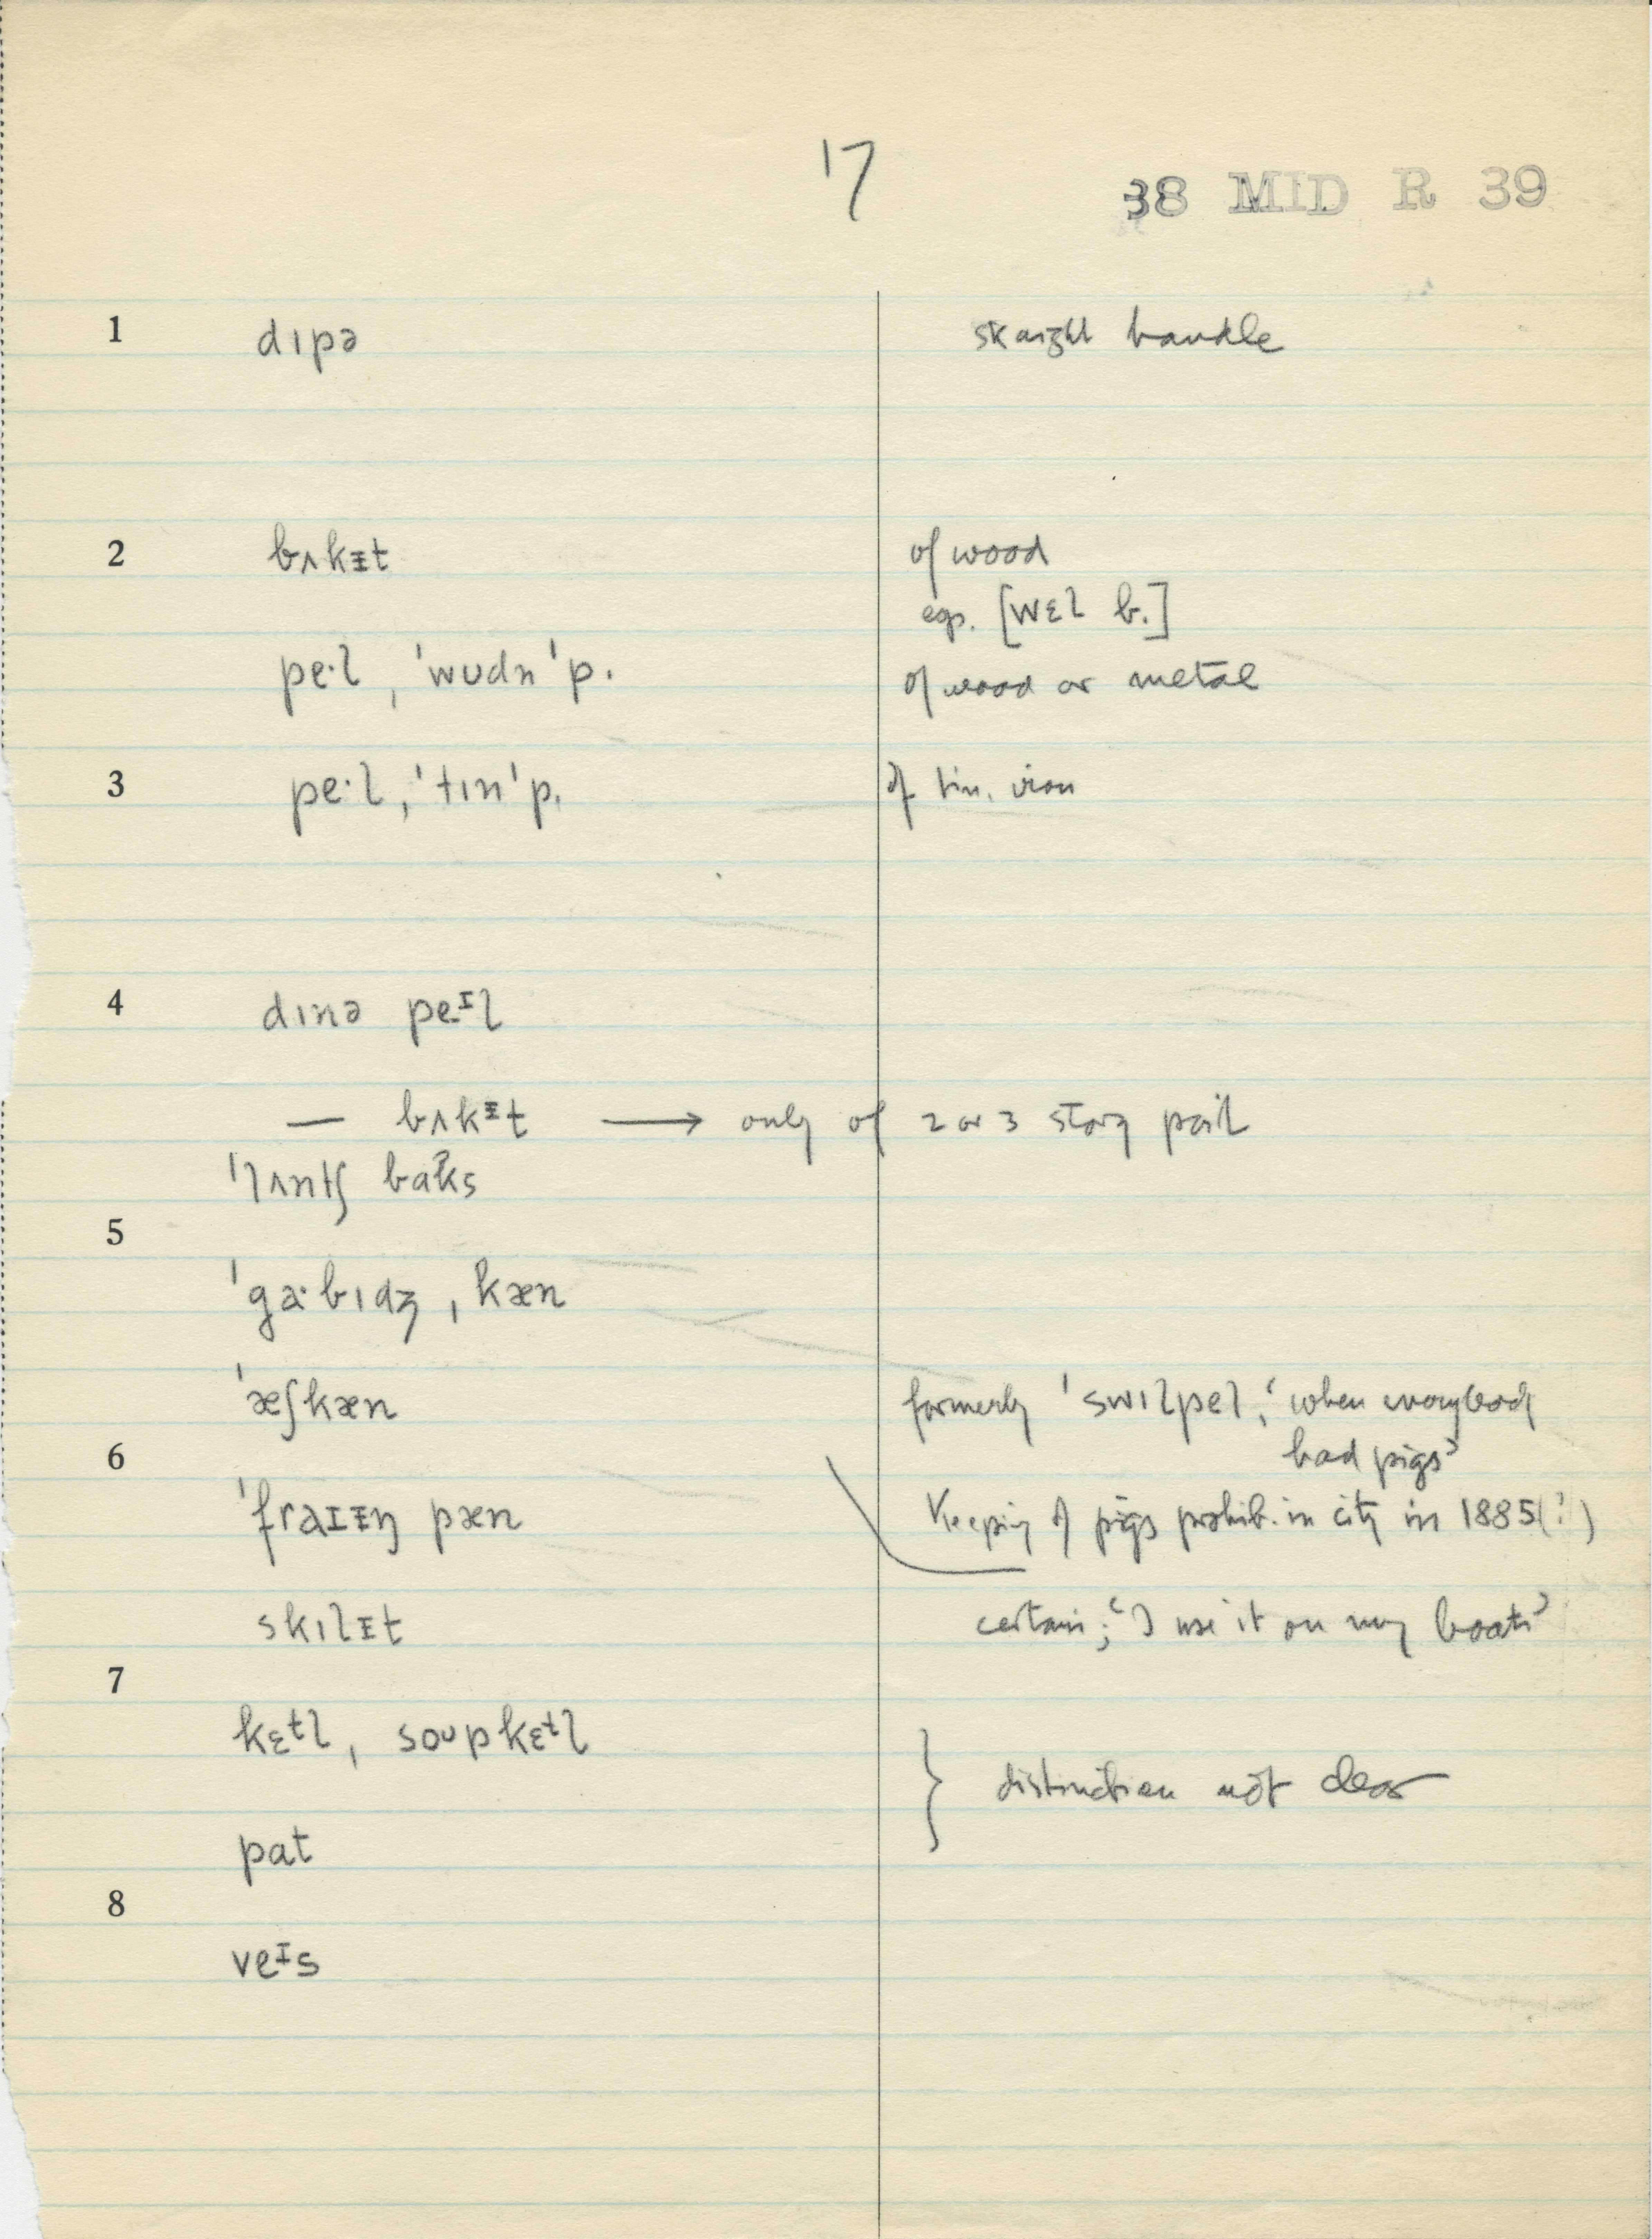 17
38 MID R 39
1 dɪpə straight handle
2 bʌkᵻt of wood
esp. [wɛl b.]
pe·l, 'wʊdn 'p. of wood or metal
3 pe·l, 'tɪn 'p. of tin, iron
4 dɪnə peᶦl
— bʌkᵻt → only of 2 or 3 story pail
'lʌntʃ baks
5
'ga·bɪdʒ, kæn
'æʃkæn formerly 'swɪlpel, 'when everybody
had pigs'
6
'fraɪᵻŋ pæn Keeping of pigs prohib. in city in 1885(?)
skɪlᵻt certain; 'I use it on my boats'
7
kɛtl, soupkɛtl
} distinction not clear
pat
8
veᶦs